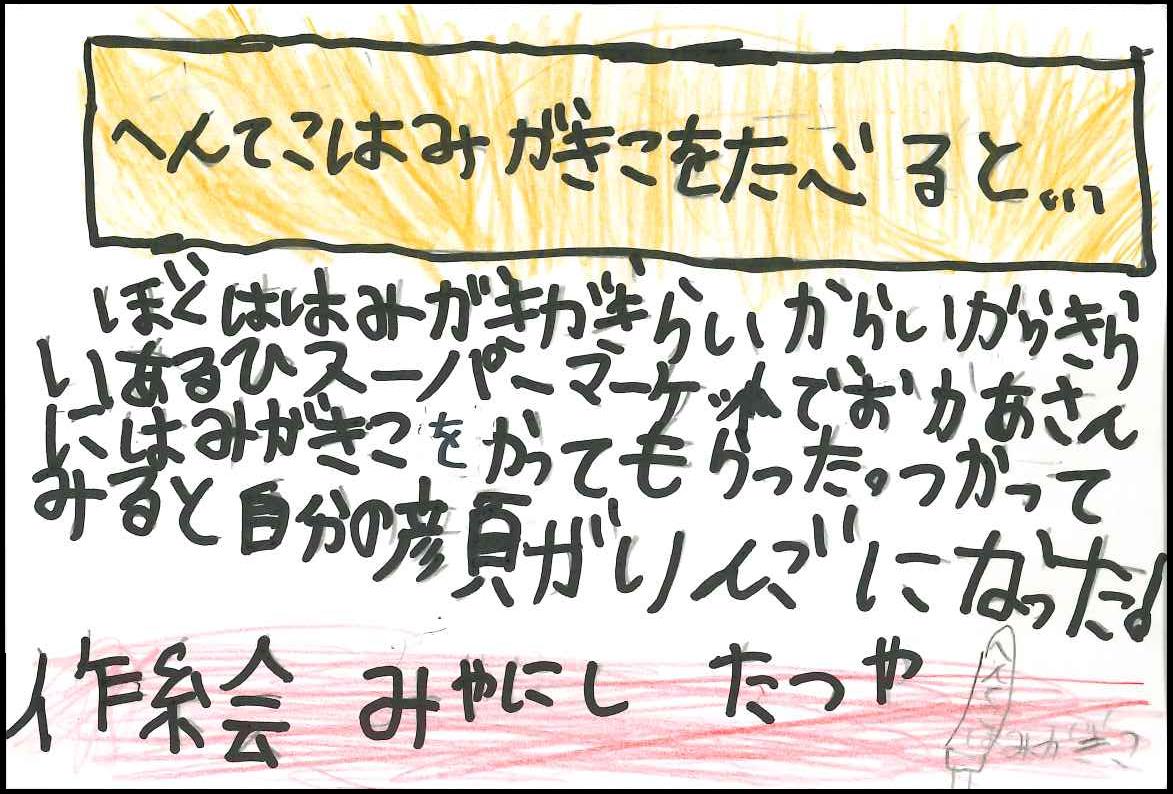 へんてこはみがきこをたべると...
ぼくははみがきがきらいからいがらきら
いあるひスーパーマーケットでおかあさん
にはみがきこをかってもらった。つかって
みると自分の顔がりんごになった!
作絵 みやにし たつや
へんてこ
はみがきこ